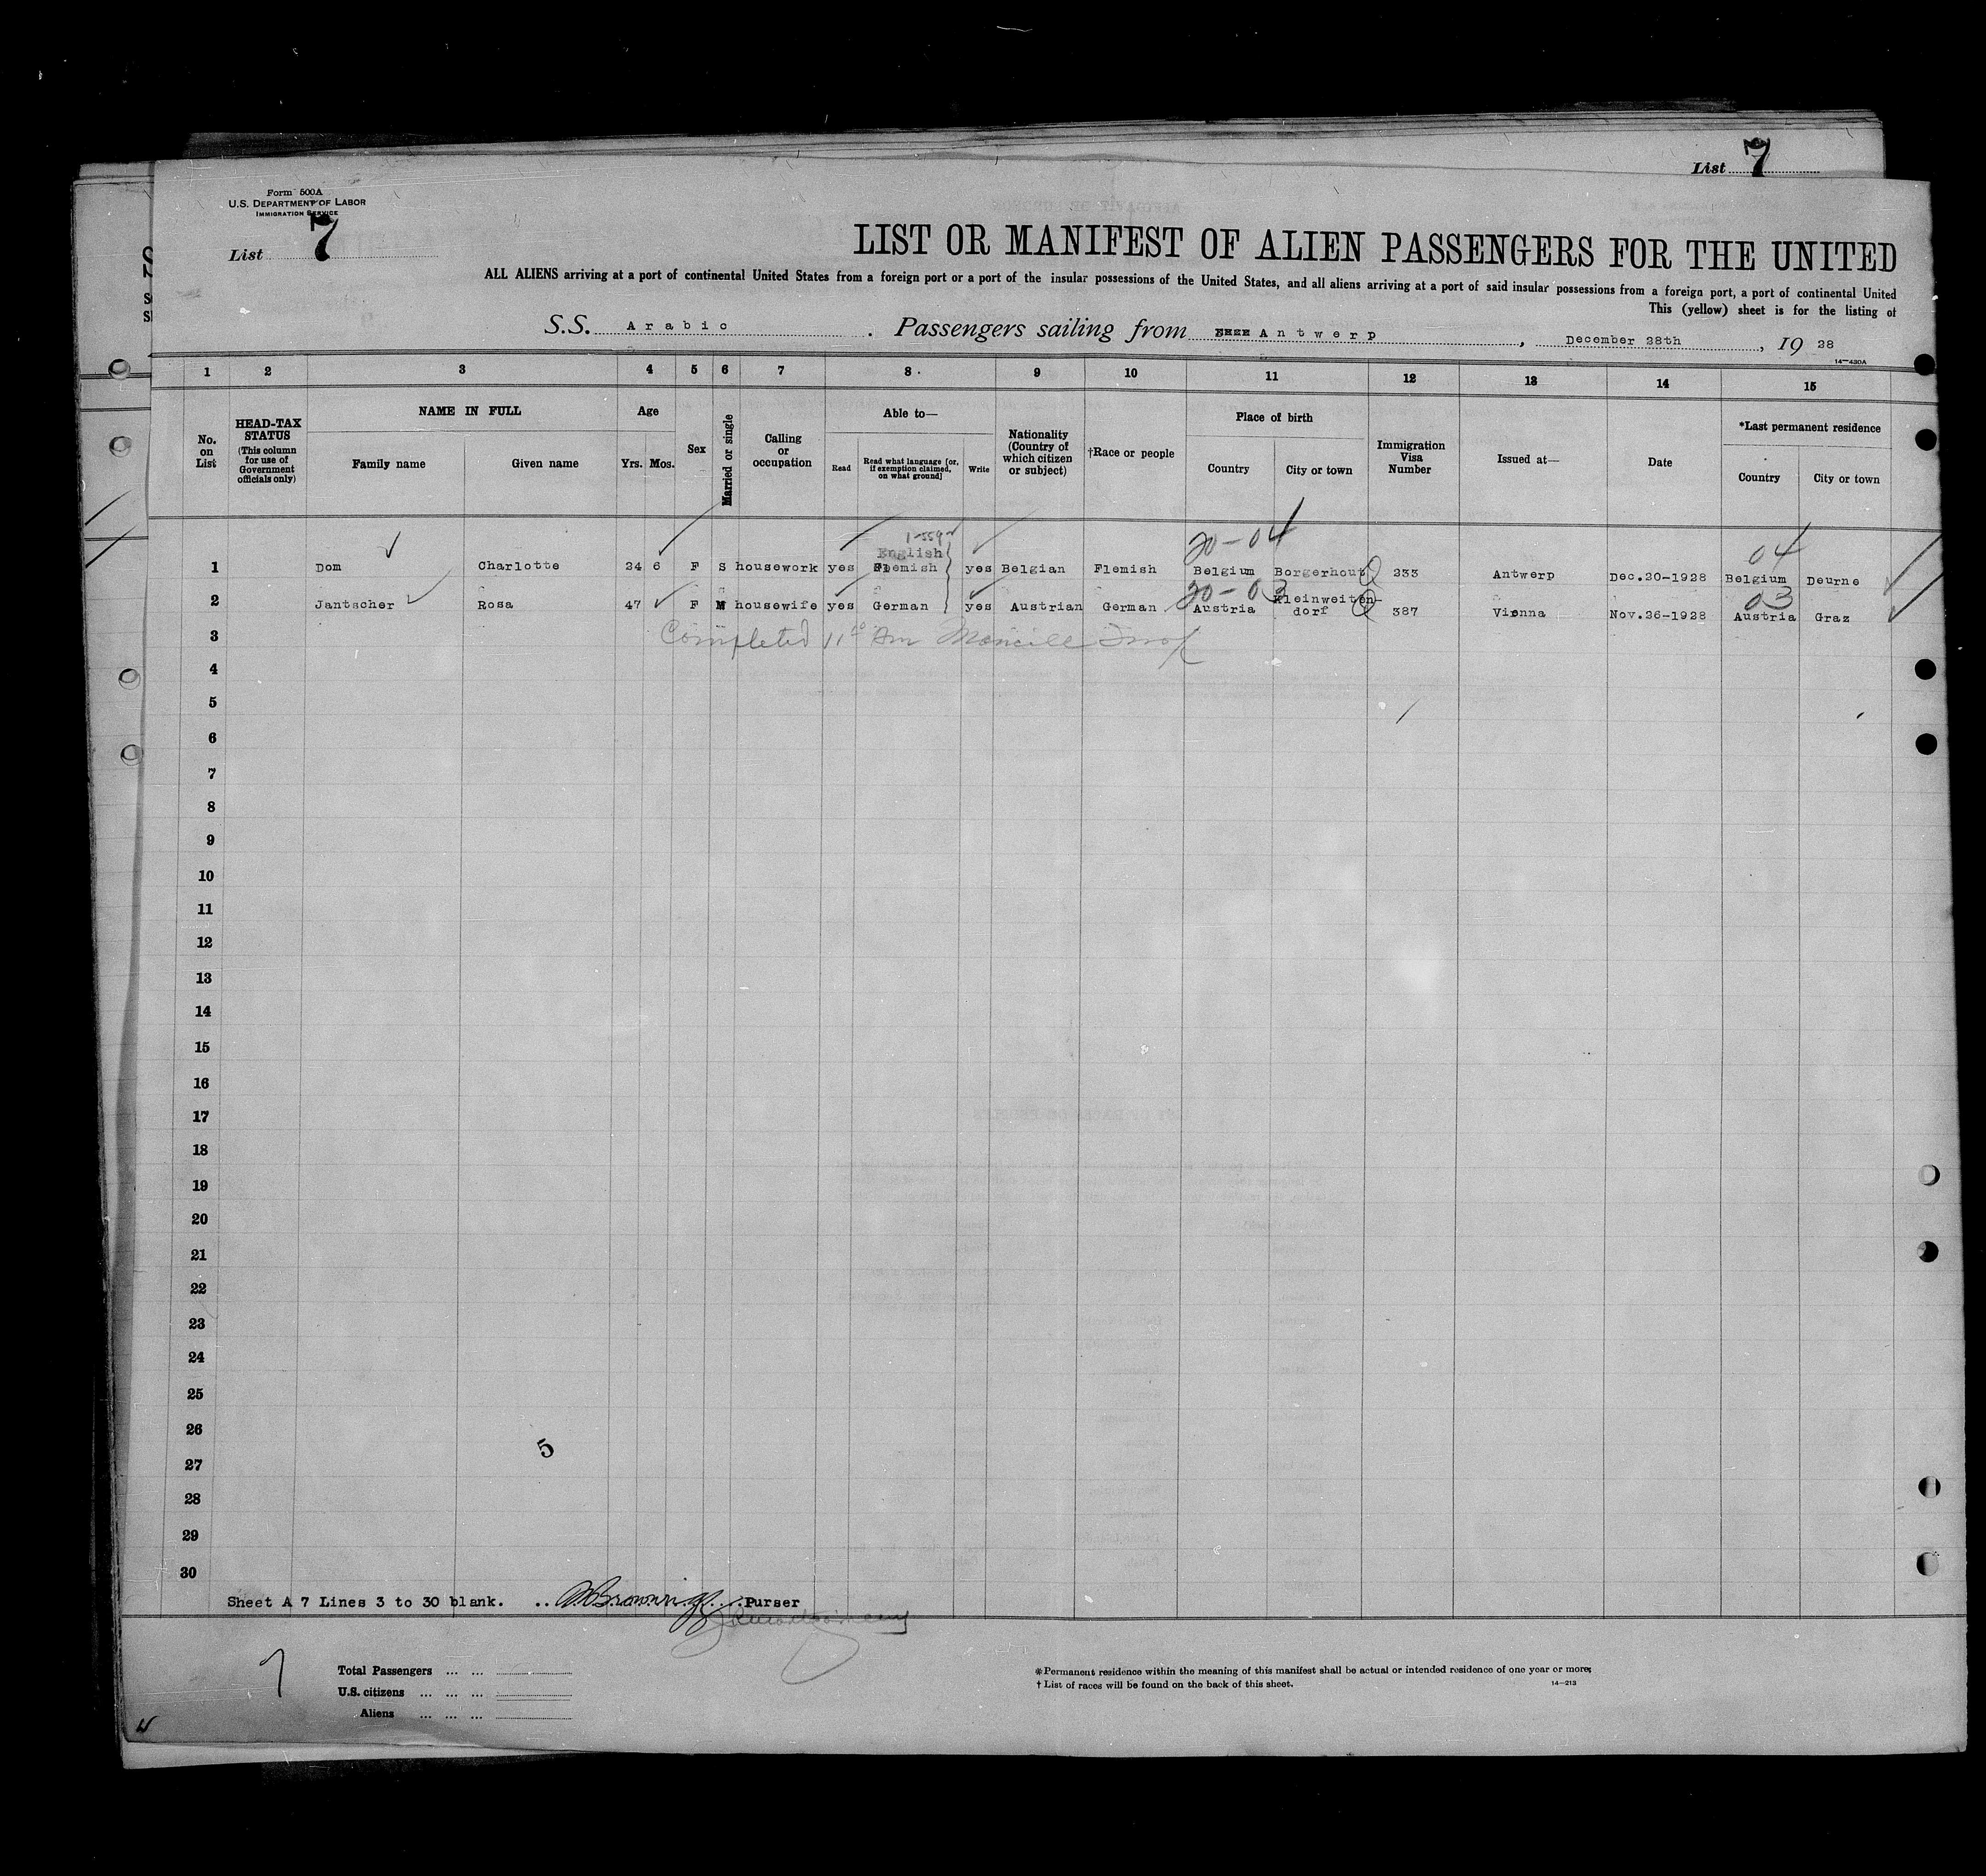 List 7
Form 500A
U.S. DEPARTMENT OF LABOR
IMMIGRATION SERVICE
List 7
LIST OR MANIFEST OF ALIEN PASSENGERS FOR THE UNITED
ALL ALIENS arriving at a port of continental United States from a foreign port or a port of the insular possessions of the United States, and all aliens arriving at a port of said insular possessions from a foreign port, a port of continental United
This (yellow) sheet is for the listing of
S.S. Arabic . Passengers sailing from Antwerp , December 28th , 19 28
14—430A
1 2 3 4 5 6 7 8 9 10 11 12 13 14 15
No. on List
HEAD-TAX STATUS
(This column for use of Government officials only)
NAME IN FULL
Family name Given name
Age
Yrs. Mos.
Sex
Married or single
Calling or occupation
Able to—
Read
Read what language [or, if exemption claimed, on what ground]
Write
Nationality (Country of which citizen or subject)
†Race or people
Place of birth
Country City or town
Immigration Visa Number
Issued at—
Date
*Last permanent residence
Country City or town
20-04 04
English
1 Dom Charlotte 24 6 F S housework yes Flemish yes Belgian Flemish Belgium Borgerhout 233 Antwerp Dec.20-1928 Belgium Deurne
20-03 03
2 Jantscher Rosa 47 F M housewife yes German yes Austrian German Austria Kleinweiten-dorf 387 Vienna Nov.26-1928 Austria Graz
3 Completed
4
5
6
7
8
9
10
11
12
13
14
15
16
17
18
19
20
21
22
23
24
25
26
5
27
28
29
30
Sheet A 7 Lines 3 to 30 blank. Purser
7
Total Passengers ... ...
U.S. citizens ... ... ...
Aliens ... ... ...
*Permanent residence within the meaning of this manifest shall be actual or intended residence of one year or more;
† List of races will be found on the back of this sheet.
14—213